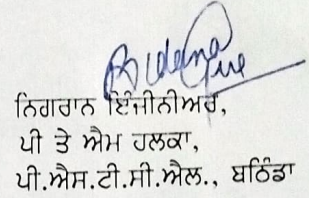 ਨਿਗਰਾਨ ਇੰਜੀਨੀਅਰ,
ਪੀ ਤੇ ਐਮ ਹਲਕਾ,
ਪੀ.ਐਸ.ਟੀ.ਸੀ.ਐਲ., ਬਠਿੰਡਾ